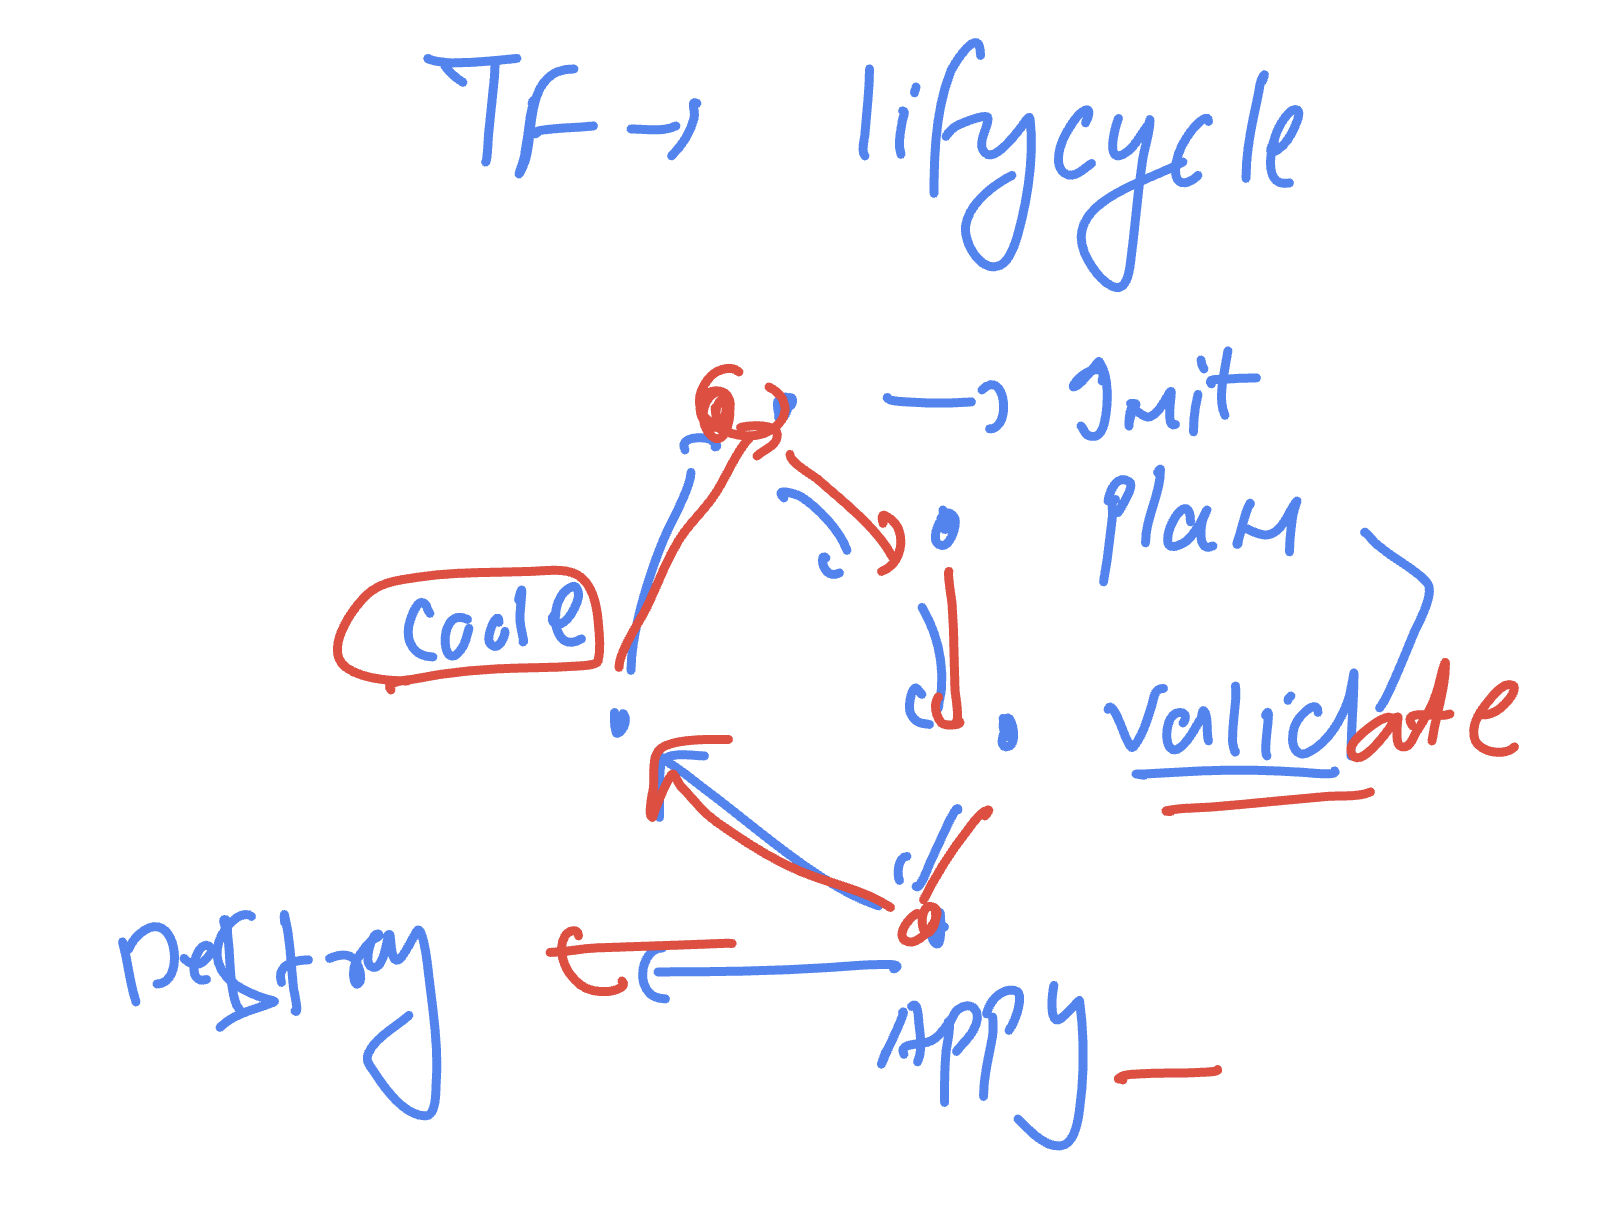 TF → lifycycle
→ Init
plan
code
validate
Destroy
APPY